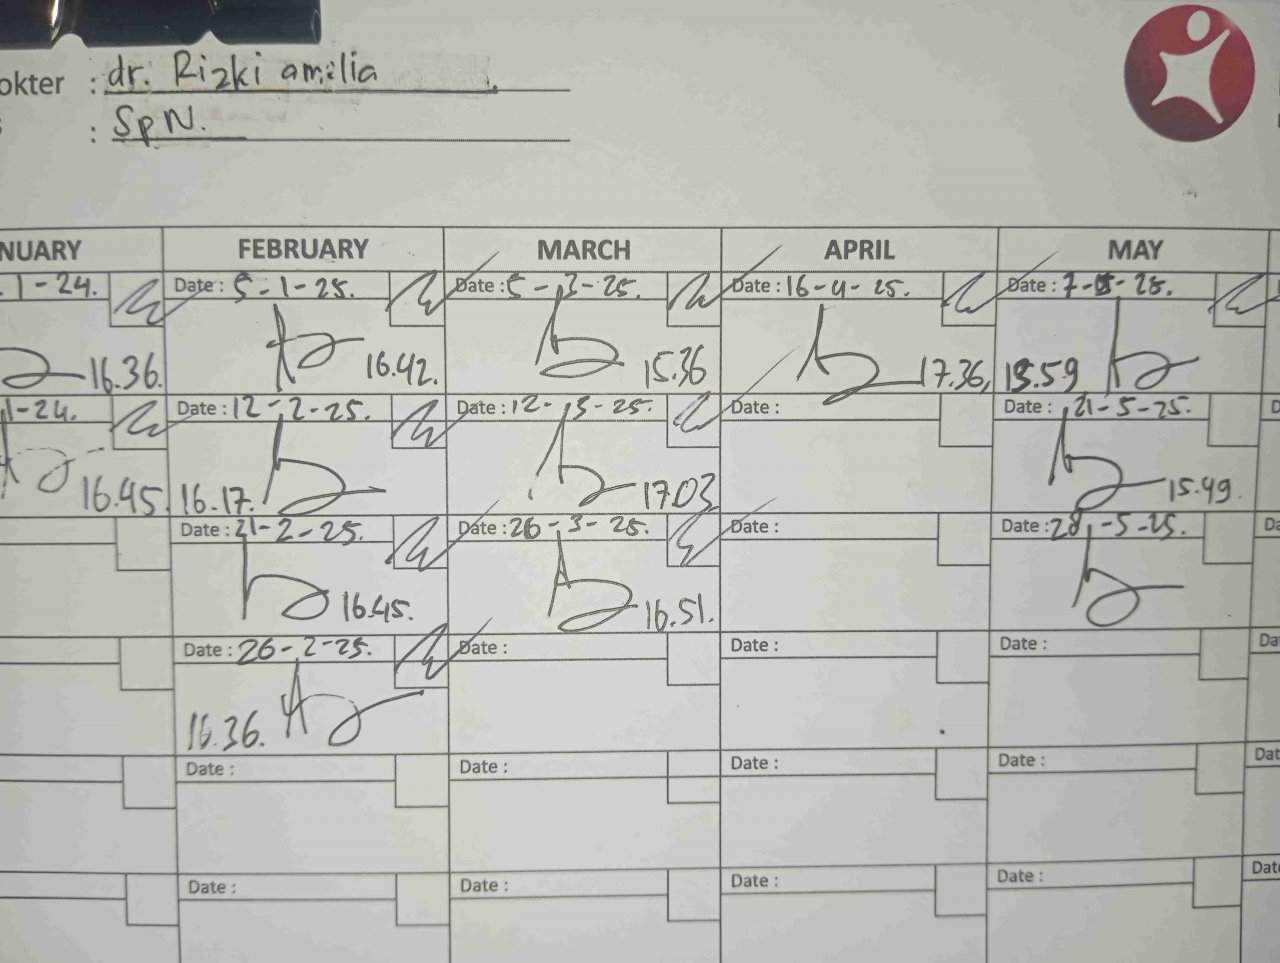 okter : dr. Rizki amilia
: SpN.
NUARY FEBRUARY MARCH APRIL MAY
1-24. Date : 5-1-25. Date : 5-3-25. Date : 16-4-25. Date : 7-5-25.
16.36. 16.42. 15.36 17.36, 15.59
1-24. Date : 12-2-25. Date : 12-3-25. Date : Date : 21-5-25. D
16.45 16.17. 17.03 15.49.
Date : 21-2-25. Date : 26-3-25. Date : Date : 28-5-25. Da
16.45. 16.51.
Date : 26-2-25. Date : Date : Date : Da
16.36.
Date : Date : Date : Date : Dat
Date : Date : Date : Date : Dat